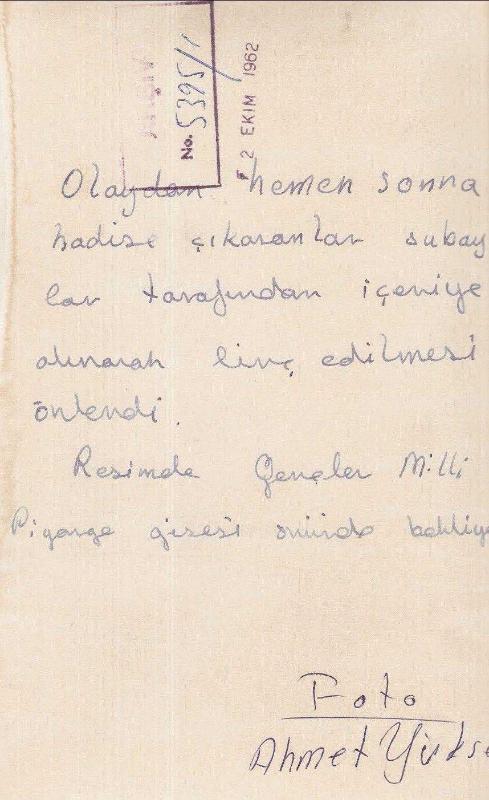 ARŞİV
No. 5395/1
2 EKİM 1962
Olaydan hemen sonra
hadise çıkaranlar subay
lar tarafından içeriye
alınarak linç edilmesi
önlendi.
Resimde Gençler Milli
Piyango gişesi önünde bekliye
Foto
Ahmet Yükse